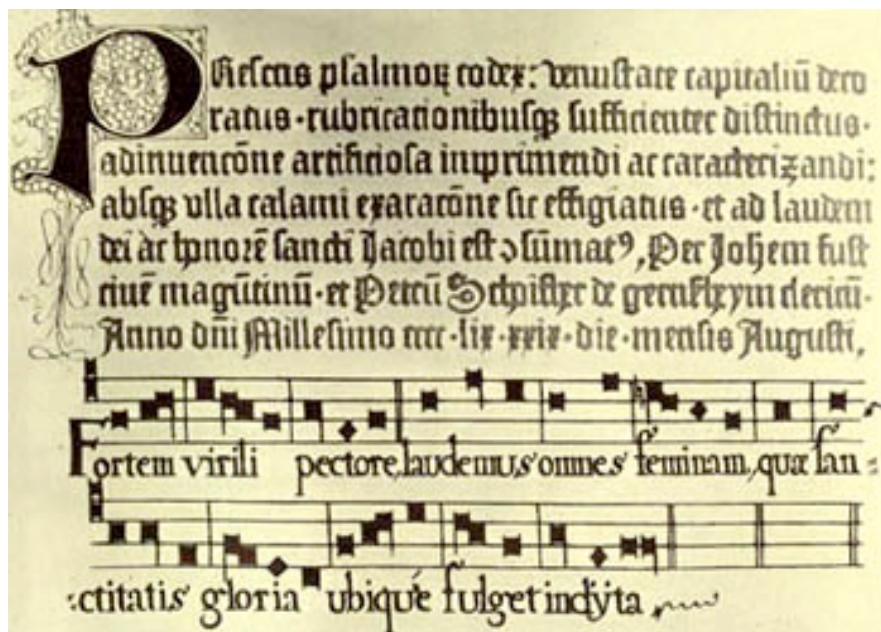 PResens psalmoꝝ codex: venustate capitaliū deco
ratus·rubricationibusqꝫ sufficienter distinctus·
adinuencōne artificiosa imprimendi ac caracterizandi:
absqꝫ vlla calami exaracōne sic effigiatus·et ad laudem
dei ac honorē sancti Jacobi est ɔsūmatꝰ, Per Johēm fust
ciuē magūtinū·et Petrū de clericū·
Anno dn̄i Millesimo cccc·lix·xxix·die·mensis Augusti,
Fortem virili pectore, laudemus omnes feminam, quæ san=
:ctitatis gloria ubique fulget inclyta